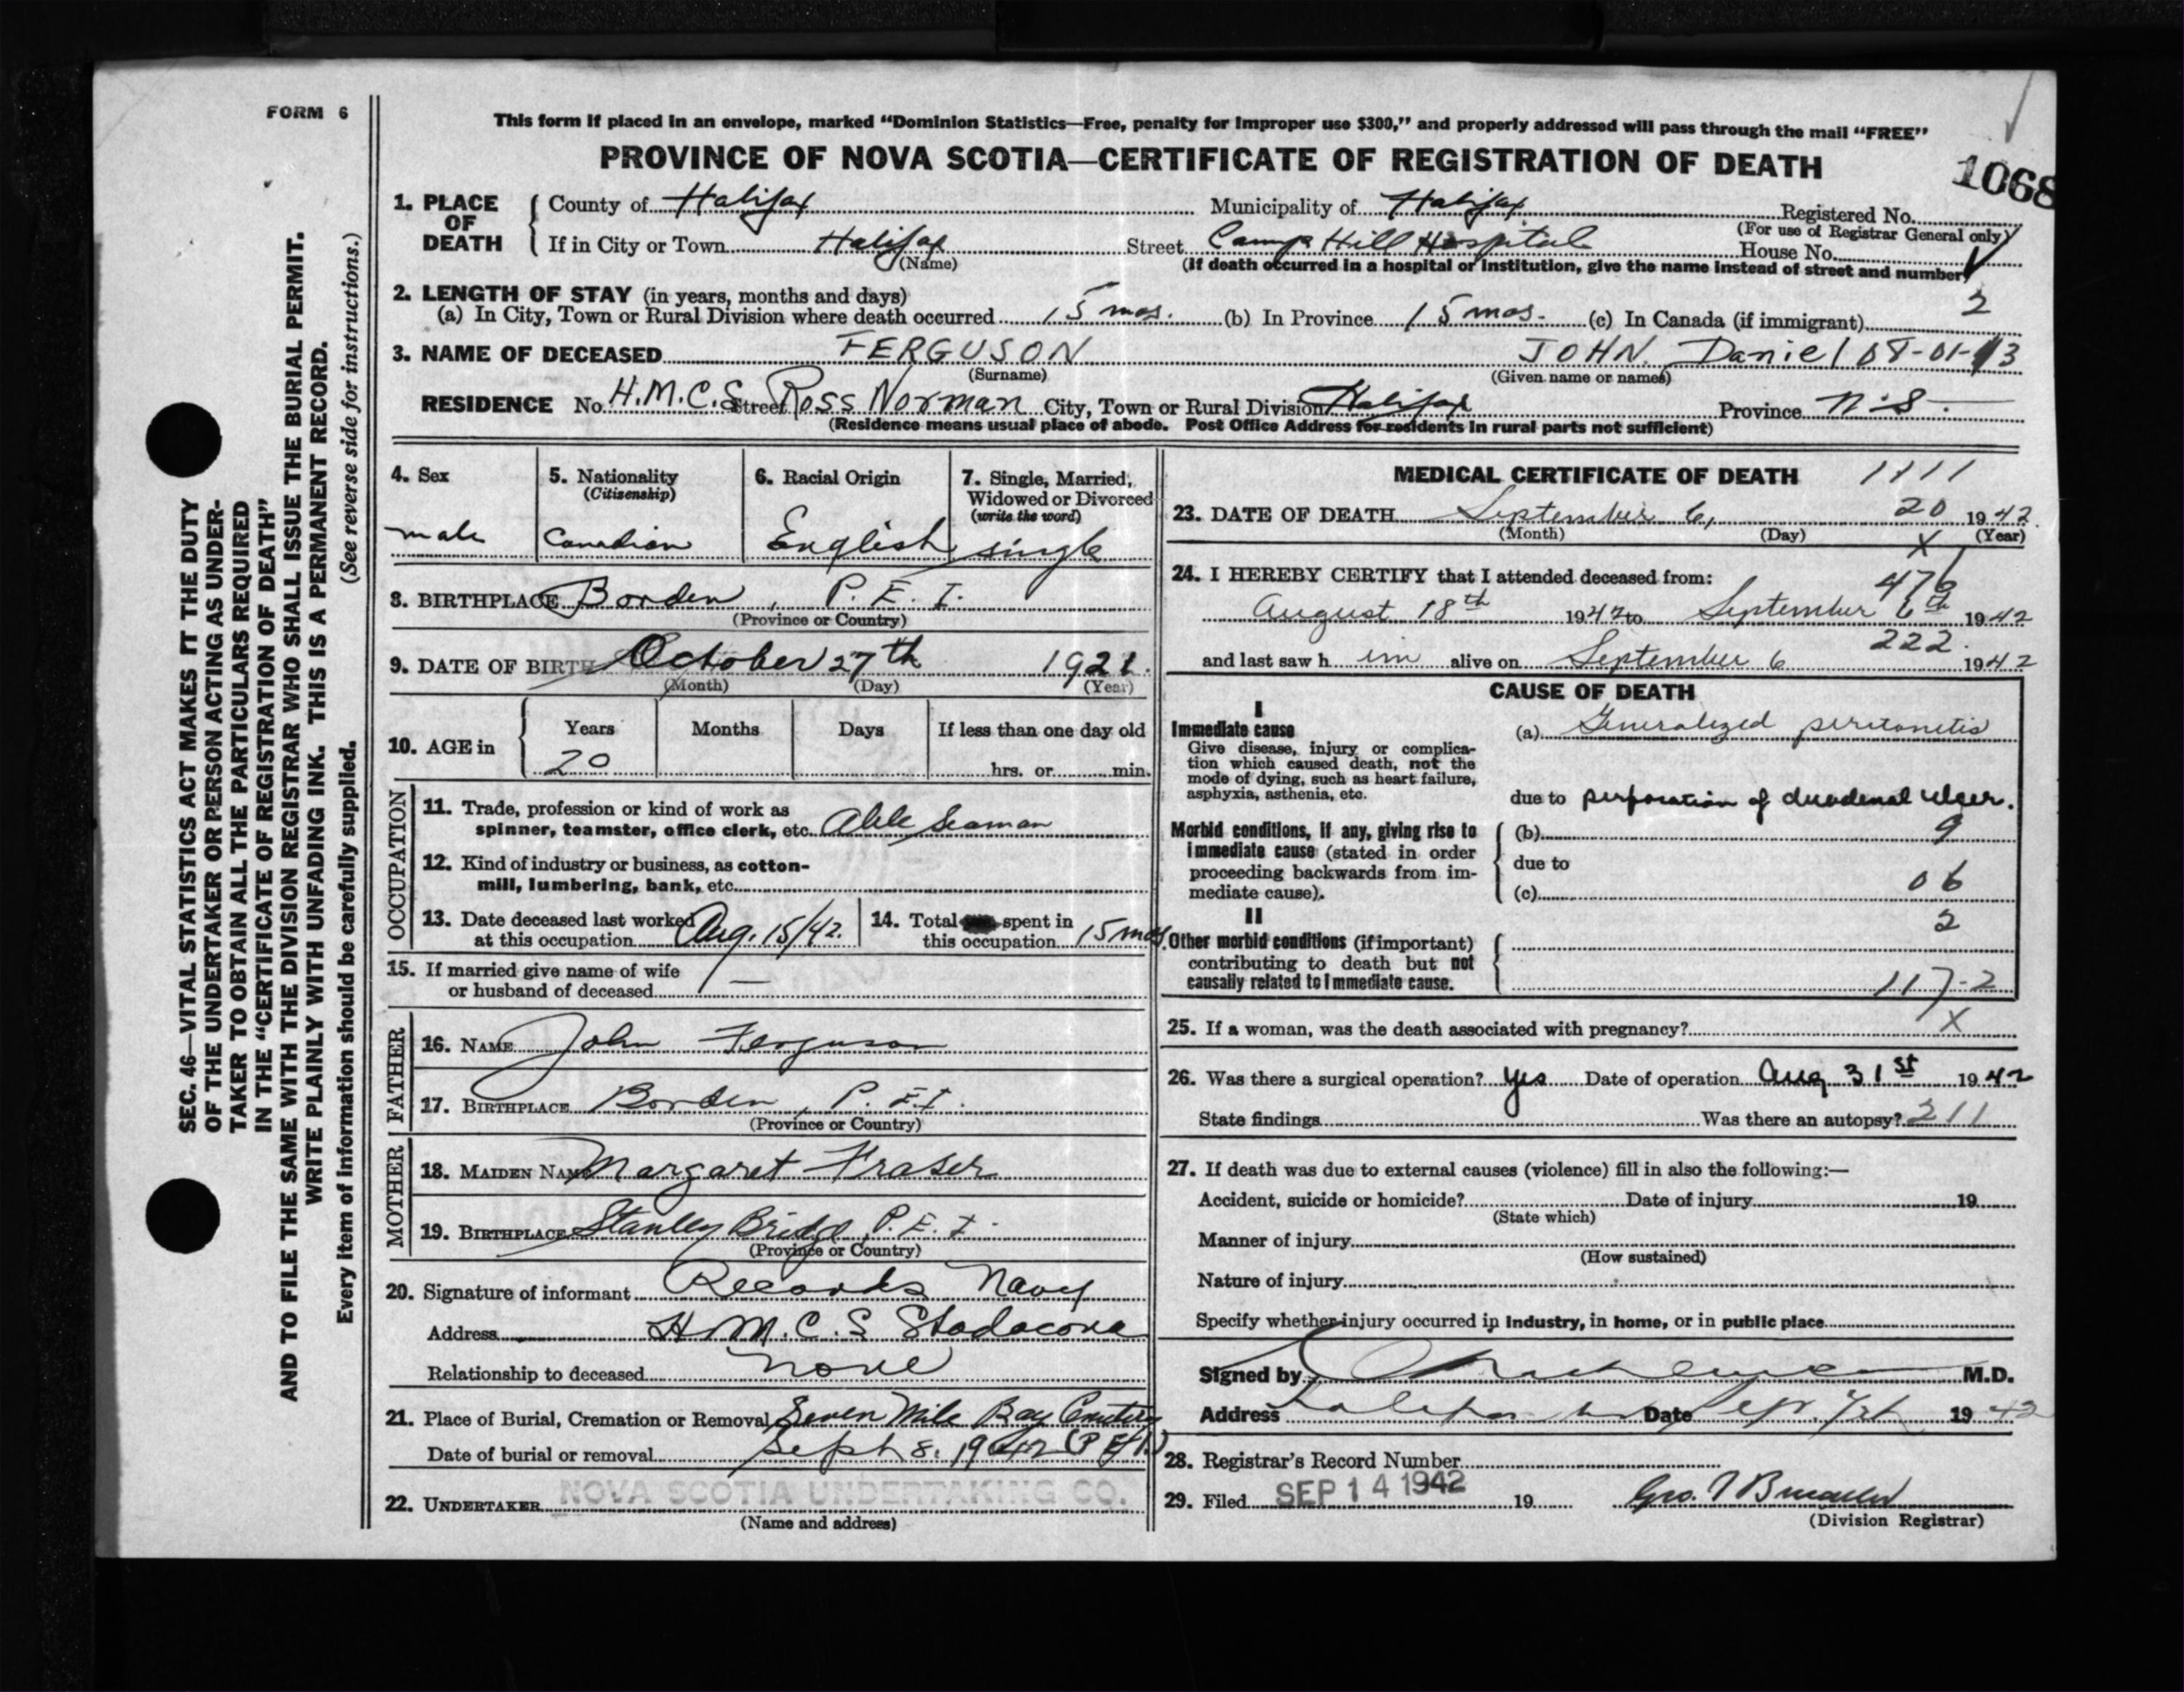 FORM 6
This form if placed in an envelope, marked "Dominion Statistics—Free, penalty for improper use $300," and properly addressed will pass through the mail "FREE"
PROVINCE OF NOVA SCOTIA—CERTIFICATE OF REGISTRATION OF DEATH
1068
1. PLACE OF DEATH
County of Halifax Municipality of Halifax Registered No.
(For use of Registrar General only)
If in City or Town Halifax Street Camp Hill Hospital House No.
(Name) (If death occurred in a hospital or institution, give the name instead of street and number)
2. LENGTH OF STAY (in years, months and days) 2
(a) In City, Town or Rural Division where death occurred 15 mos. (b) In Province 15 mos. (c) In Canada (if immigrant)
3. NAME OF DECEASED FERGUSON JOHN Daniel 08-01-13
(Surname) (Given name or names)
RESIDENCE No. H.M.C.S. Street Ross Norman City, Town or Rural Division Halifax Province N.S.
(Residence means usual place of abode. Post Office Address for residents in rural parts not sufficient)
4. Sex
male
5. Nationality
(Citizenship)
Canadian
6. Racial Origin
English
7. Single, Married, Widowed or Divorced
(write the word)
single
8. BIRTHPLACE Borden, P.E.I.
(Province or Country)
9. DATE OF BIRTH October 27th 1921.
(Month) (Day) (Year)
10. AGE in
Years Months Days If less than one day old
20 hrs. or min.
OCCUPATION
11. Trade, profession or kind of work as
spinner, teamster, office clerk, etc. Able Seaman
12. Kind of industry or business, as cotton-
mill, lumbering, bank, etc.
13. Date deceased last worked
at this occupation Aug. 15/42.
14. Total spent in
this occupation 15 mos.
15. If married give name of wife
or husband of deceased —
FATHER
16. NAME John Ferguson
17. BIRTHPLACE Borden, P.E.I.
(Province or Country)
MOTHER
18. MAIDEN NAME Margaret Fraser
19. BIRTHPLACE Stanley Bridge, P.E.I.
(Province or Country)
20. Signature of informant Records Navy
Address H.M.C.S Stadacona
Relationship to deceased none
21. Place of Burial, Cremation or Removal Seven Mile Bay Cemetery
Date of burial or removal Sept 8. 1942 (P E I.)
22. UNDERTAKER NOVA SCOTIA UNDERTAKING CO.
(Name and address)
MEDICAL CERTIFICATE OF DEATH 1111
23. DATE OF DEATH September 6, 20 1942
(Month) (Day) (Year)
X
24. I HEREBY CERTIFY that I attended deceased from:
476
August 18th 1942 to September 6th 1942
222.
and last saw him alive on September 6 1942
CAUSE OF DEATH
I
Immediate cause
Give disease, injury or complica-
tion which caused death, not the
mode of dying, such as heart failure,
asphyxia, asthenia, etc.
(a) Generalized peritonitis
due to perforation of duodenal ulcer.
Morbid conditions, if any, giving rise to
immediate cause (stated in order
proceeding backwards from im-
mediate cause).
(b) 9
due to
(c) 06
II
2
Other morbid conditions (if important)
contributing to death but not
causally related to immediate cause.
117-2
25. If a woman, was the death associated with pregnancy? X
26. Was there a surgical operation? yes Date of operation Aug 31st 1942
State findings Was there an autopsy? 211
27. If death was due to external causes (violence) fill in also the following:—
Accident, suicide or homicide? Date of injury 19
(State which)
Manner of injury
(How sustained)
Nature of injury
Specify whether injury occurred in industry, in home, or in public place
Signed by M.D.
Address Date Sep. 7th 1942
28. Registrar's Record Number
29. Filed SEP 14 1942 19
(Division Registrar)
SEC. 46—VITAL STATISTICS ACT MAKES IT THE DUTY
OF THE UNDERTAKER OR PERSON ACTING AS UNDER-
TAKER TO OBTAIN ALL THE PARTICULARS REQUIRED
IN THE "CERTIFICATE OF REGISTRATION OF DEATH"
AND TO FILE THE SAME WITH THE DIVISION REGISTRAR WHO SHALL ISSUE THE BURIAL PERMIT.
WRITE PLAINLY WITH UNFADING INK. THIS IS A PERMANENT RECORD.
Every item of information should be carefully supplied. (See reverse side for instructions.)